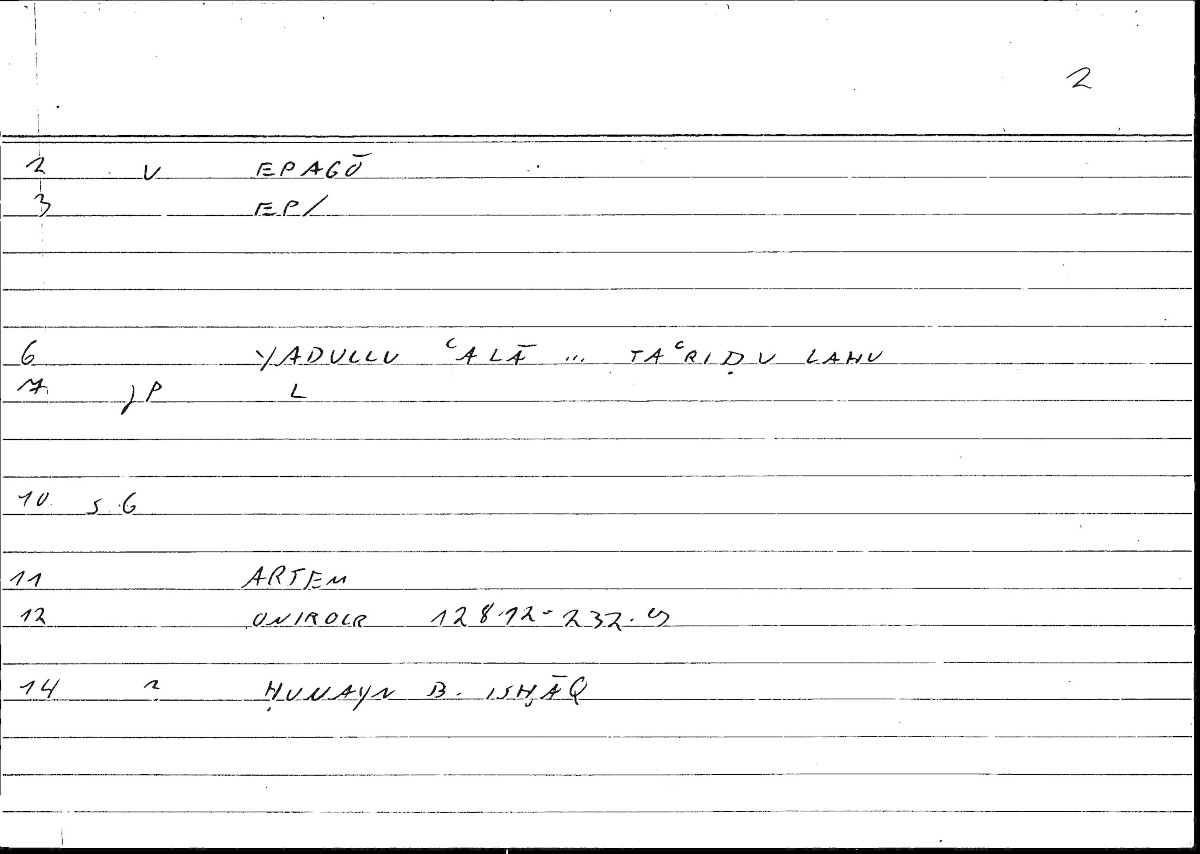 2
2 V EPAGŌ
3 EP/
6 YADULLU ʿALĀ ... TAʿRIḌU LAHU
7 JP L
10 S G
11 ARTEM
12 ONIROCR 128.12-232.5
14 2 ḤUNAYN B. ISḤĀQ